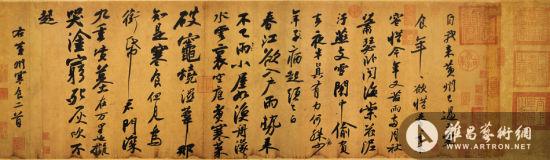 自我來黃州已過三寒
食年〻欲惜春春去不
容惜今年又苦雨兩月秋
蕭瑟臥聞海棠花泥
汙燕支雪闇中偷負
去夜半真有力何殊少
年子病起頭已白
春江欲入戶雨勢來
不已雨小屋如漁舟濛〻
水雲裏空庖煮寒菜
破竈燒濕葦那
知是寒食但見烏
銜帋君門深
九重墳墓在萬里也擬
哭塗窮死灰吹不
起
右黃州寒食二首
雅昌藝術網